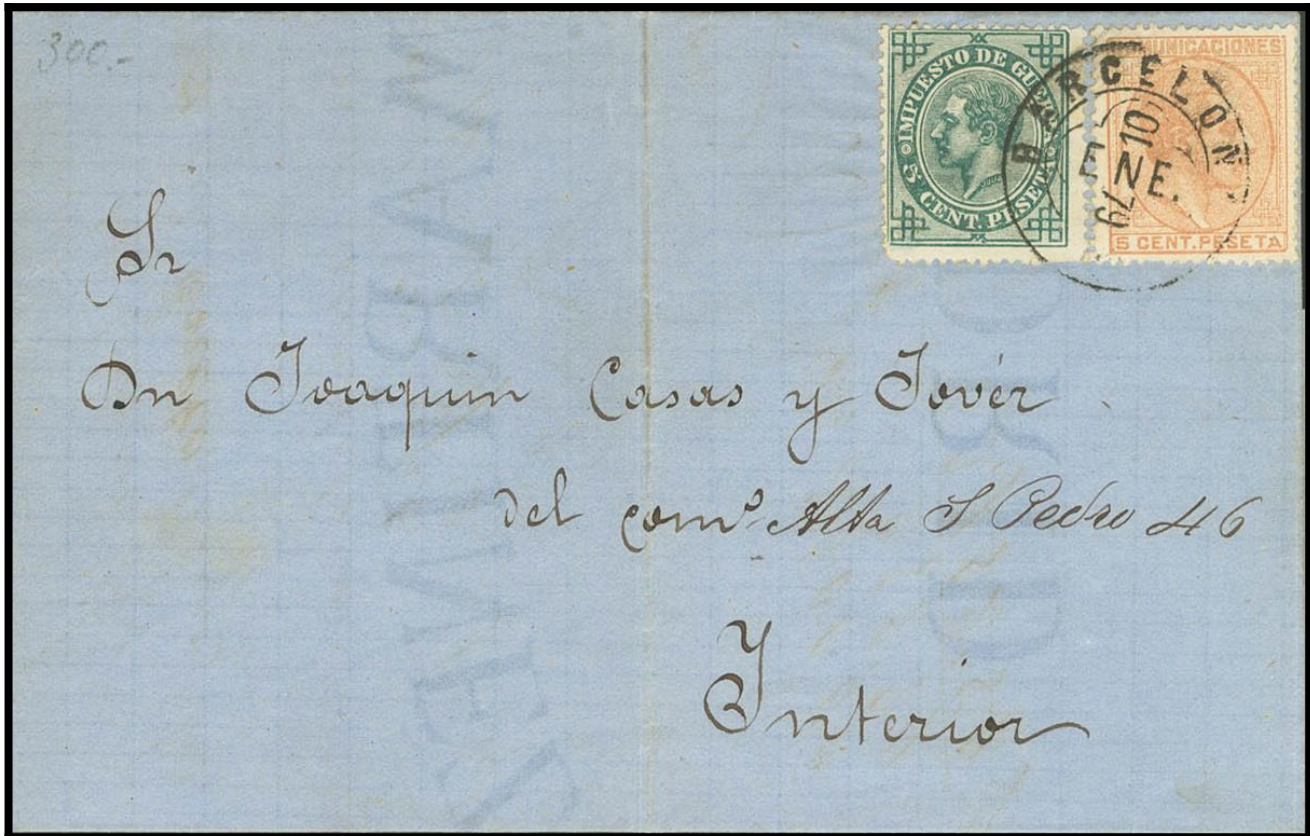 300.-
IMPUESTO DE GUE
5 CENT. PESETA
COMUNICACIONES
5 CENT. PESETA
BARCELON
10
ENE.
79
Sr
Dn Joaquin Casas y Jovér
del comº Alta S Pedro 46
Interior